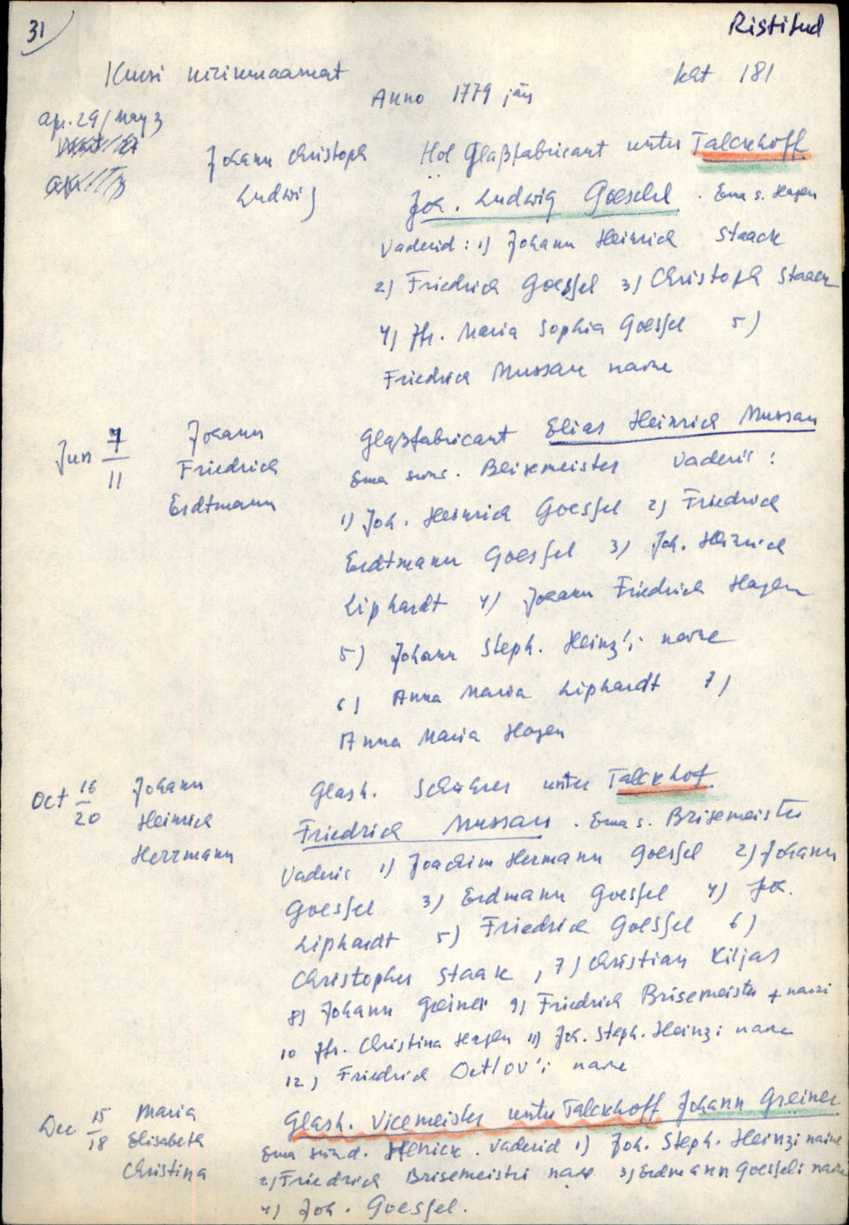 31
Ristitud
Kursi kirikuraamat
kat 181
Anno 1779
Apr. 29/May 3
Johann Christoph
Ludwig
Hol Glaßfabricant unter Talckhoff
Joh. Ludwig Goeschel. Ema s. Hagen
Vaderid: 1) Johann Heinrich Staack
2) Friedrich Goessel 3) Christoph Staack
4) Jfr. Maria Sophia Goessel 5)
Friedrich Mussau naine
Jun 7/11
Johann
Friedrich
Erdtmann
Glaßfabricant Elias Heinrich Mussau
Ema sünd. Vaderis:
1) Joh. Heinrich Goessel 2) Friedrich
Erdtmann Goessel 3) Joh. Heinrich
Liphardt 4) Johann Friedrich Hagen
5) Johann Steph. Heinz'i naine
6) Anna Maria Liphardt 7)
Anna Maria Hagen
Oct 16/20
Johann
Heinrich
Herrmann
Glash. unter Talckhof
Friedrich Mussau. Ema s. Brisemeister
Vaderis 1) Joachim Hermann Goessel 2) Johann
Goessel 3) Erdmann Goessel 4) Joh.
Liphardt 5) Friedrich Goessel 6)
Christopher Staack, 7) Christian Kiljas
8) Johann Greiner 9) Friedrich Brisemeister + naine
10 Jfr. Christina Hagen 11) Joh. Steph. Heinzi naine
12) Friedrich Detlov'i naine
Dec 15/18
Maria
Elisabeth
Christina
Glash. Vicemeister unter Talckhoff Johann Greiner
Ema sünd. Henick. Vaderid 1) Joh. Steph. Heinzi naine
2) Friedrich Brisemeistri naine 3) Erdmann Goesseli naine
4) Joh. Goessel.